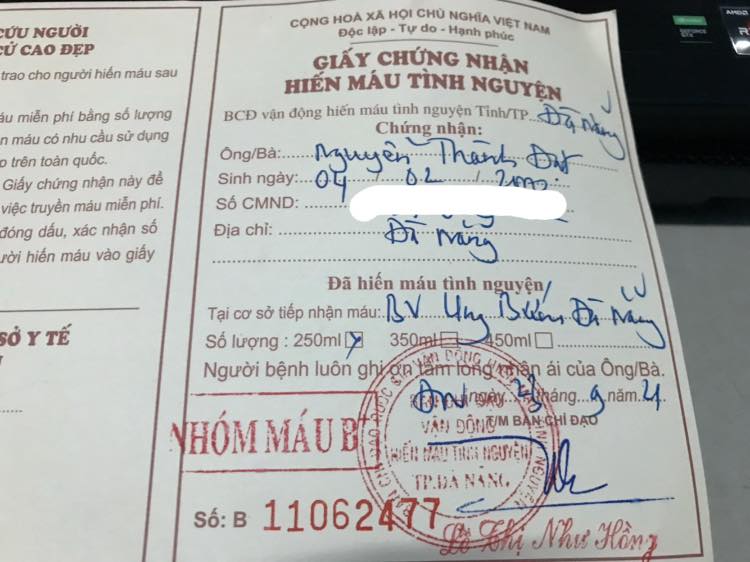 CỨU NGƯỜI
CỬ CAO ĐẸP
trao cho người hiến máu sau
áu miễn phí bằng số lượng
n máu có nhu cầu sử dụng
p trên toàn quốc.
Giấy chứng nhận này để
việc truyền máu miễn phí.
đóng dấu, xác nhận số
ười hiến máu vào giấy
SỞ Y TẾ
CỘNG HOÀ XÃ HỘI CHỦ NGHĨA VIỆT NAM
Độc lập - Tự do - Hạnh phúc
GIẤY CHỨNG NHẬN
HIẾN MÁU TÌNH NGUYỆN
BCĐ vận động hiến máu tình nguyện Tỉnh/TP Đà Nẵng
Chứng nhận:
Ông/Bà: Nguyễn Thành Đạt
Sinh ngày: 04 / 02 /
Số CMND:
Địa chỉ: Đà Nẵng
Đã hiến máu tình nguyện
Tại cơ sở tiếp nhận máu: BV Ung Bướu Đà Nẵng
Số lượng : 250ml 350ml 450ml
Người bệnh luôn ghi ơn tấm lòng nhân ái của Ông/Bà.
ĐN ngày 28 tháng 9 năm 21
T/M BAN CHỈ ĐẠO
BAN CHỈ ĐẠO
VẬN ĐỘNG
HIẾN MÁU TÌNH NGUYỆN
TP.ĐÀ NẴNG
NHÓM MÁU B+
Số: B 11062477
Lê Thị Như Hồng
GEFORCE
GTX
AMD